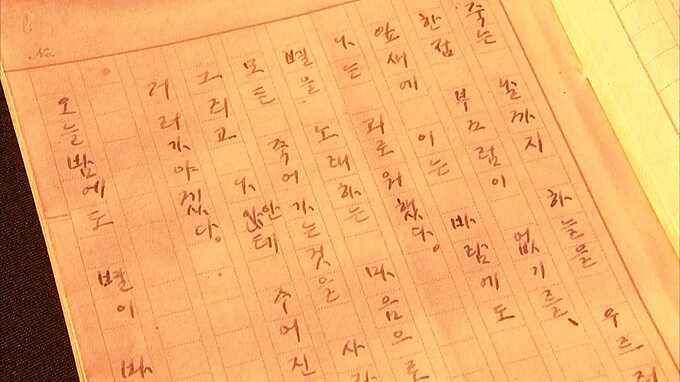 죽는 날까지 하늘을 우르
한점 부끄럼이 없기를、
잎새에 이는 바람에도
나는 괴로워했다.
별을 노래하는 마음으로
모든 죽어가는것을 사
그리고 나안테 주어진
거러가야겠다.
오늘밤에도 별이 바
No.